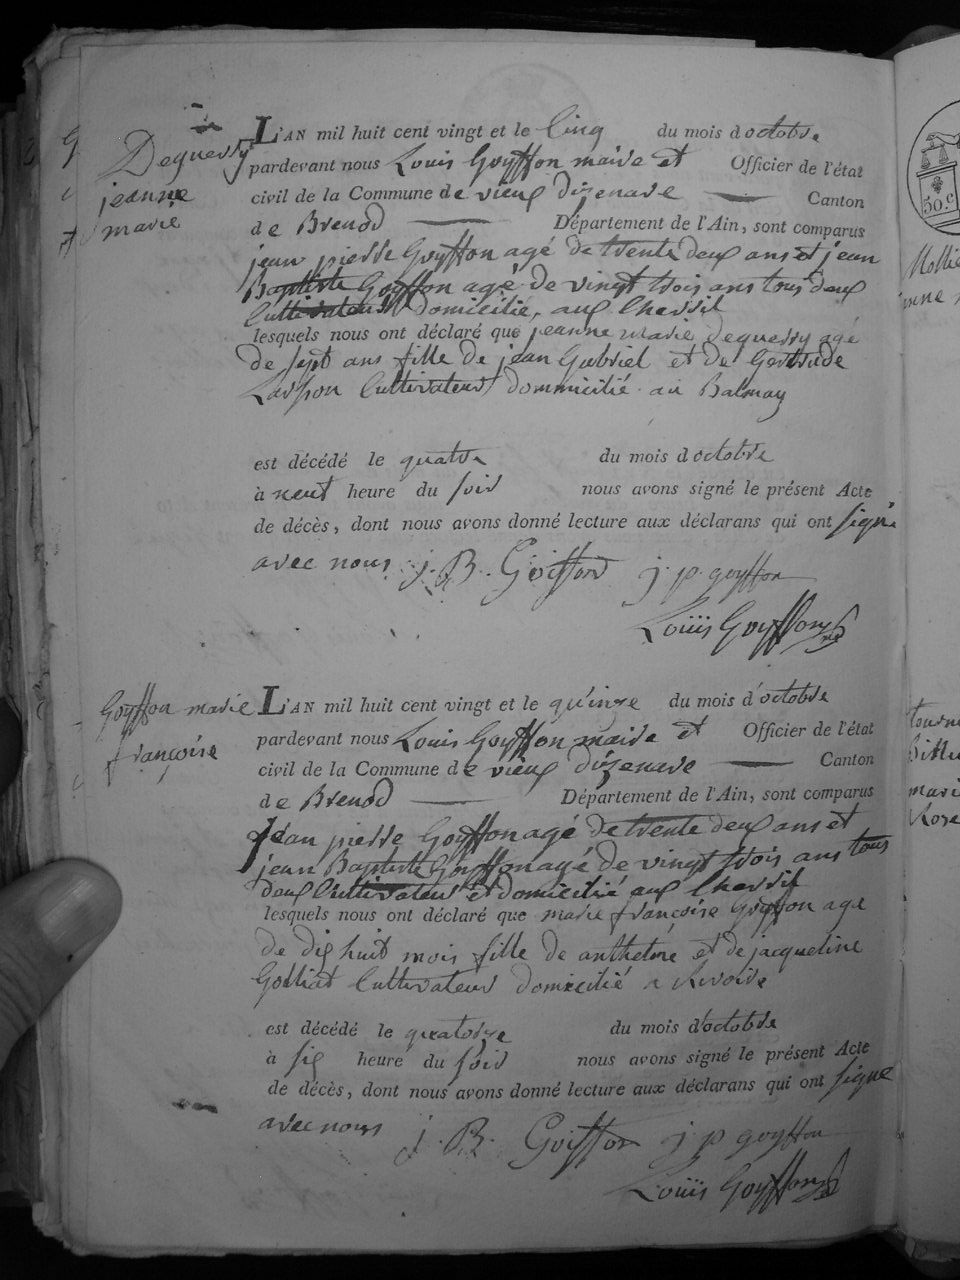 Deguerry
jeanne
marie
L'AN mil huit cent vingt et le Cinq du mois d octobre
pardevant nous Louis Goyffon maire et Officier de l'état
civil de la Commune de vieux dizenave Canton
de Brenod Département de l'Ain, sont comparus
jean pierre Goyffon agé de trente deux ans et jean
Baptiste Goyffon agé de vingt trois ans tous deux
Cultivateurs Domicilié, aux Chersil
lesquels nous ont déclaré que jeanne marie Deguerry agé
de sept ans fille de jean Gabriel et de Gertrude
Carpon Cultivateur dommicilié au Balmay
est décédé le quatre du mois d octobre
à neuf heure du soir nous avons signé le présent Acte
de décès, dont nous avons donné lecture aux déclarans qui ont signé
avec nous j. B. Goiffon j. p. goyffon
Louis Goyffon
Goyffon marie
françoise
L'AN mil huit cent vingt et le quinze du mois d'octobre
pardevant nous Louis Goyffon maire et Officier de l'état
civil de la Commune de vieux dizenave Canton
de Brenod Département de l'Ain, sont comparus
jean pierre Goyffon agé de trente deux ans et
jean Baptiste Goyffon agé de vingt trois ans tous
deux Cultivateur et domicilié aux Chersil
lesquels nous ont déclaré que marie françoise Goyffon age
de dix huit mois fille de anthelme et de jacqueline
Golliat Cultivateur domicilié a Rivoire
est décédé le quatorze du mois d'octobre
à six heure du soir nous avons signé le présent Acte
de décès, dont nous avons donné lecture aux déclarans qui ont signé
avec nous j. B. Goiffon j p goyffon
Louis Goyffon
50.c